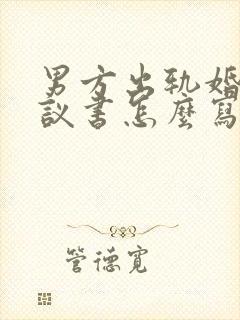 男方出轨婚
议书怎麼寫
管德寬